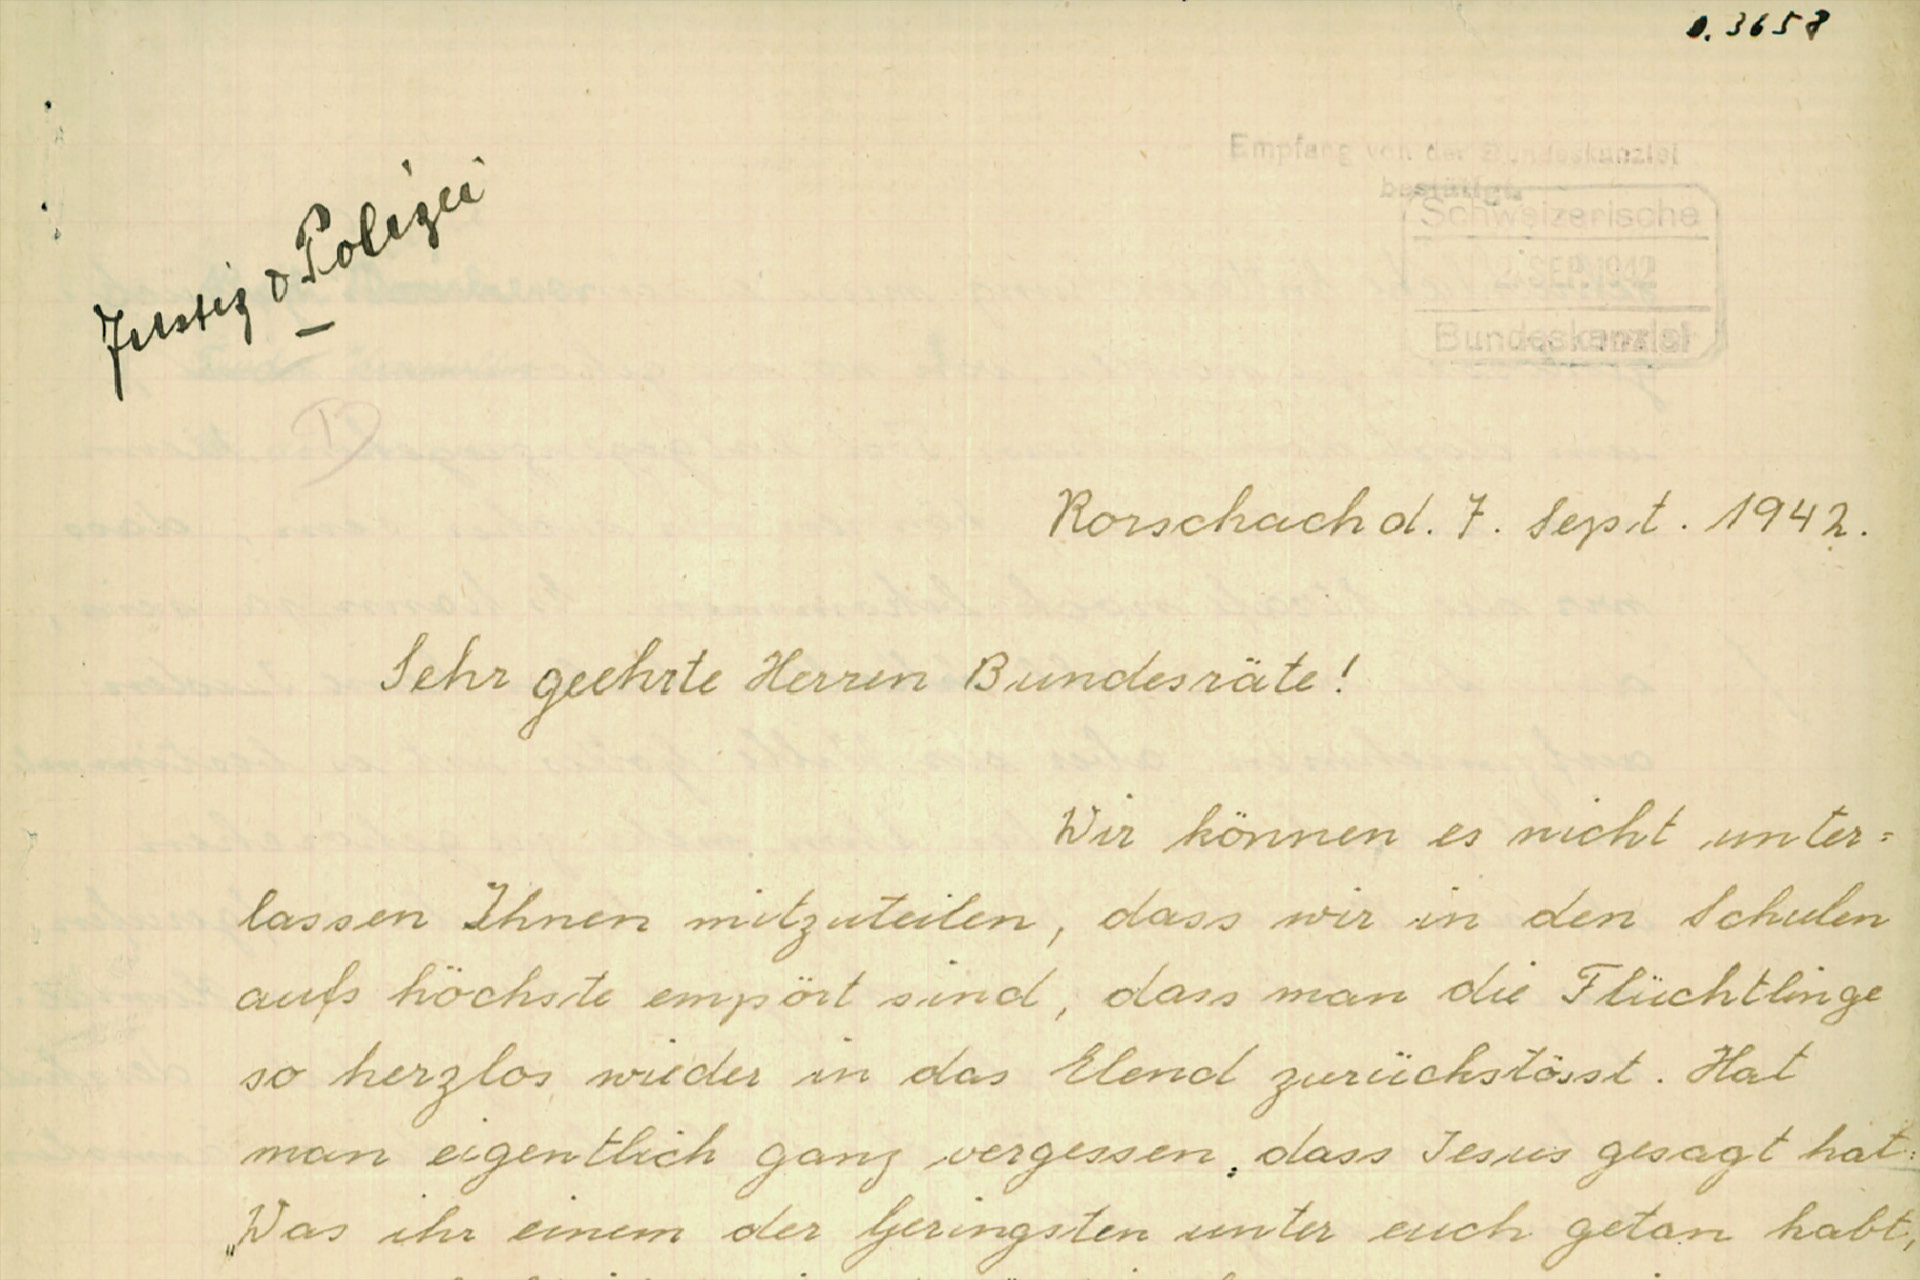 0. 3658
Empfang von der Bundeskanzlei
bestätigt
Schweizerische
SEP. 1942
Bundeskanzlei
Justiz & Polizei
Rorschach d. 7. Sept. 1942.
Sehr geehrte Herren Bundesräte!
Wir können es nicht unter=
lassen Ihnen mitzuteilen, dass wir in den Schulen
aufs höchste empört sind, dass man die Flüchtlinge
so herzlos wieder in das Elend zurückstösst. Hat
man eigentlich ganz vergessen, dass Jesus gesagt hat:
„Was ihr einem der Geringsten unter euch getan habt,